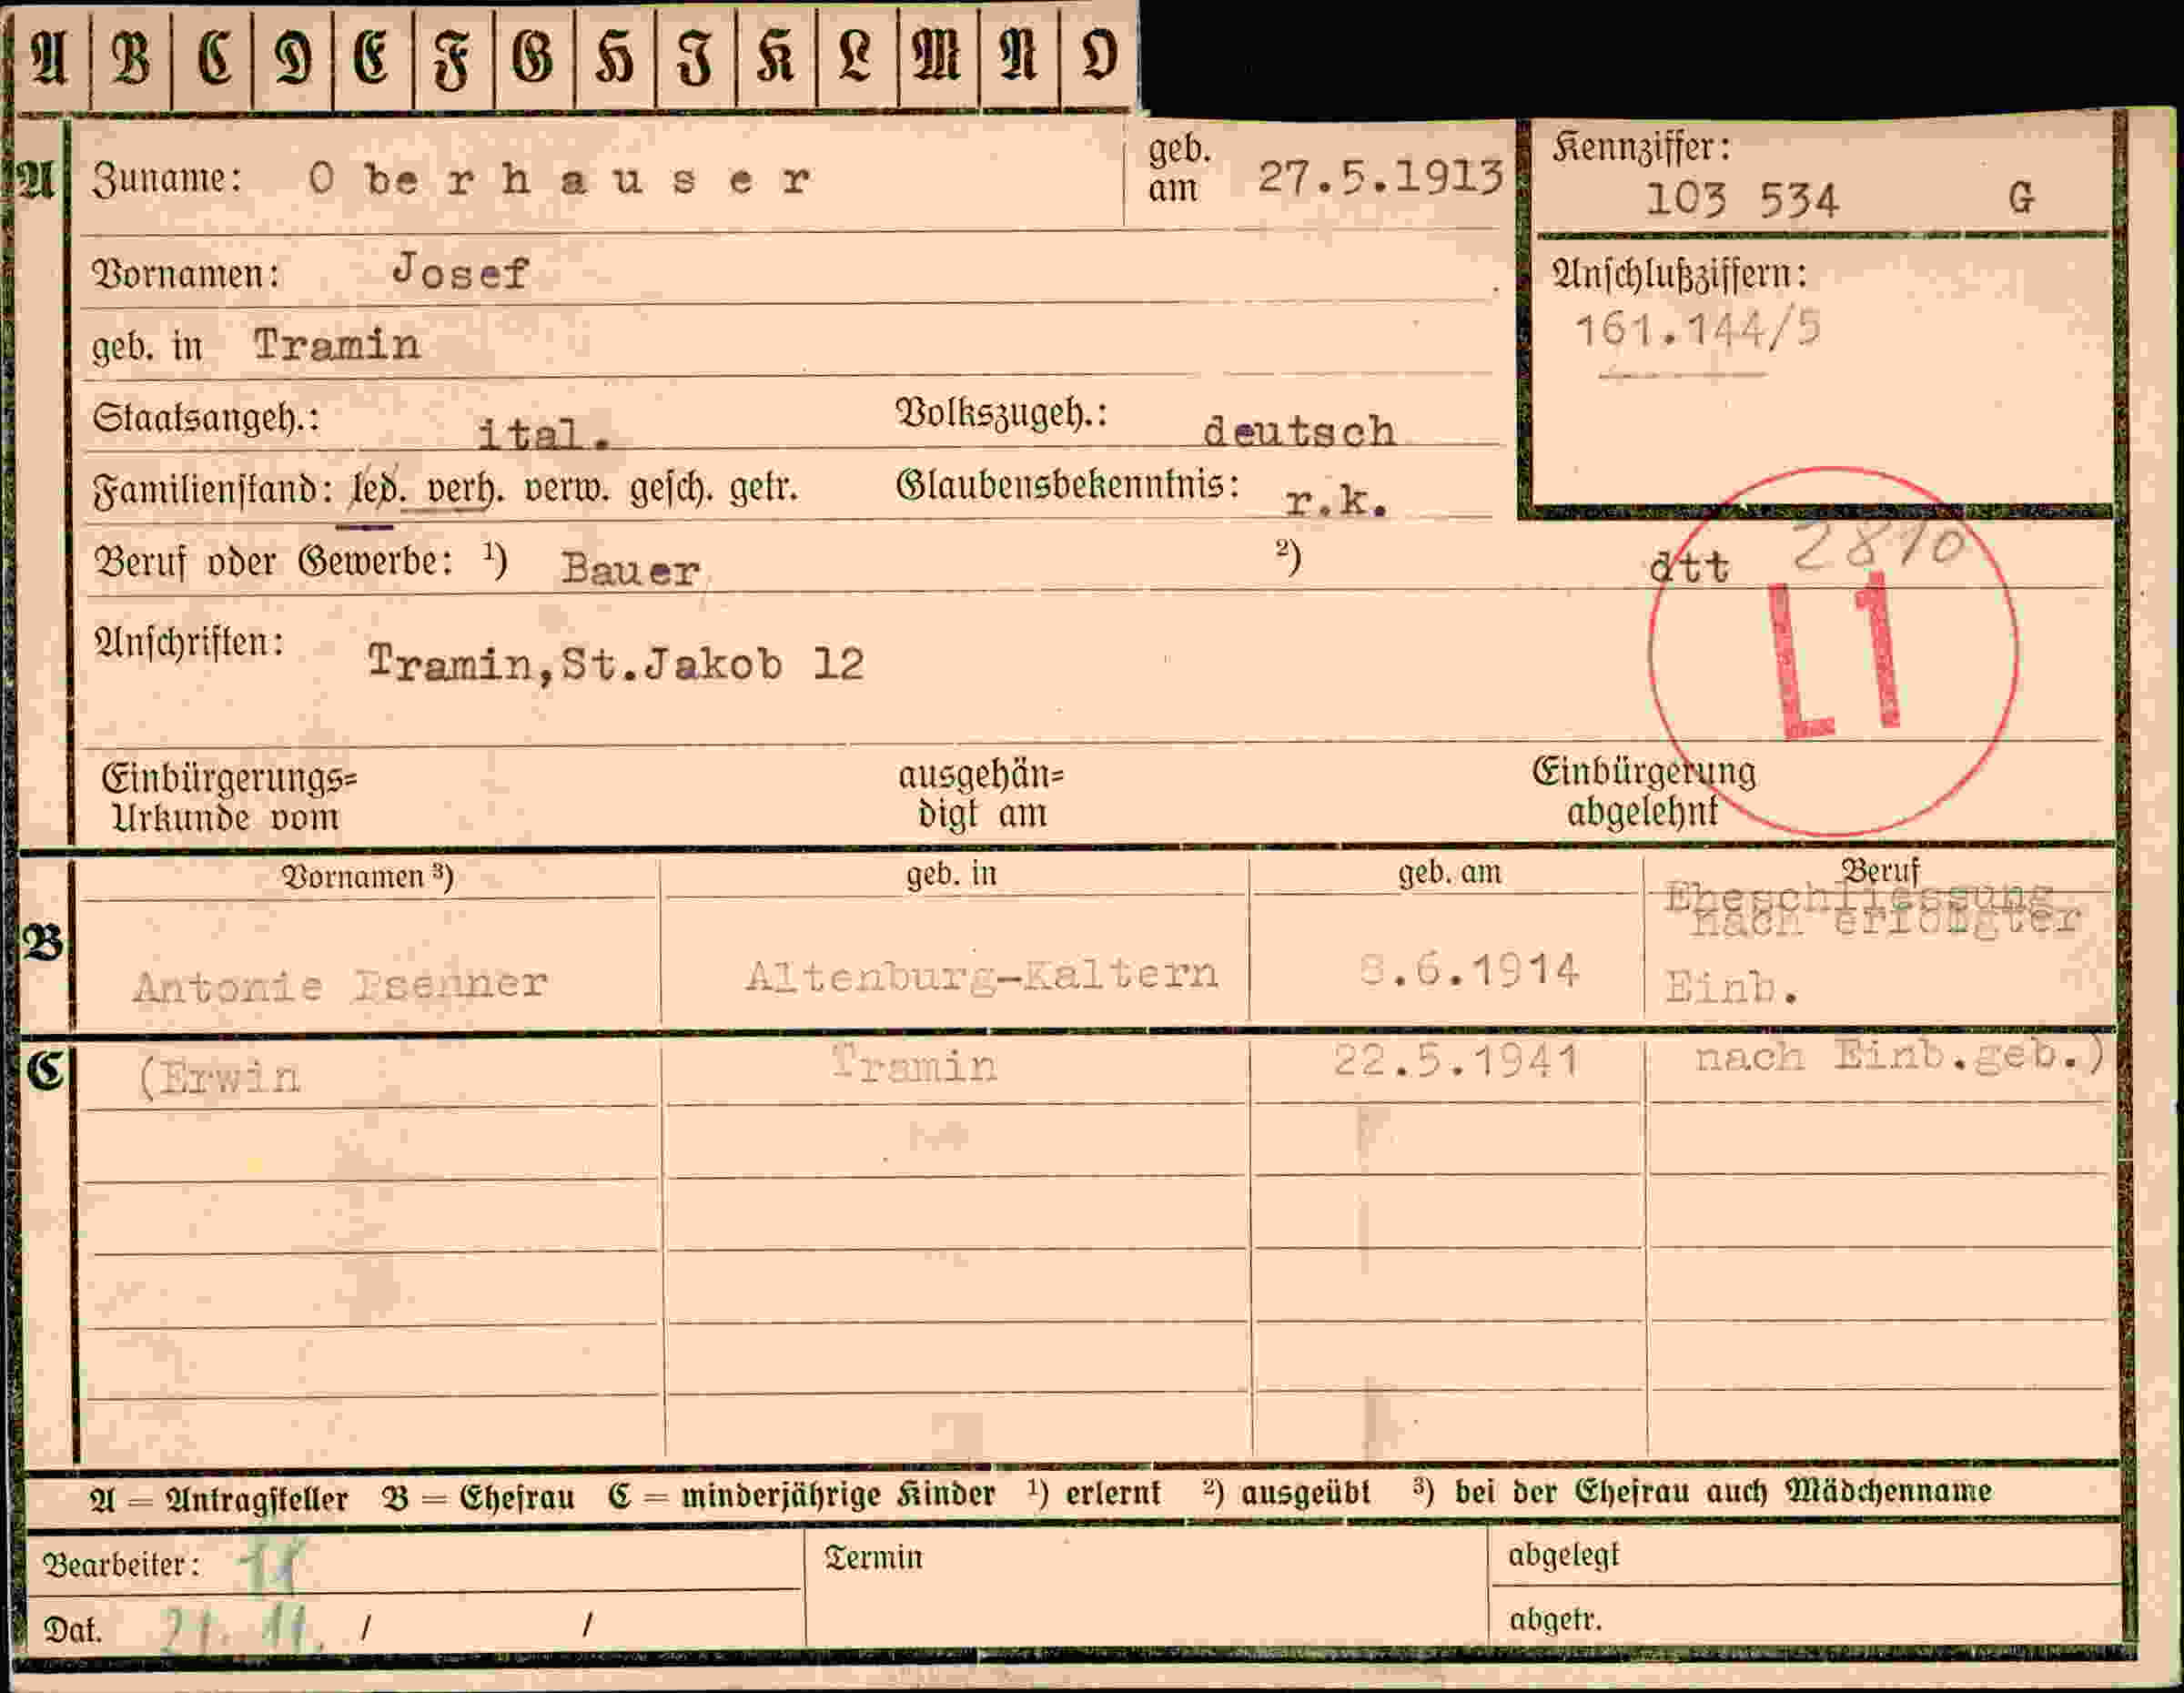 A B C D E F G H I K L M N O
A Zuname: Oberhauser geb. am 27.5.1913 Kennziffer: 103 534 G
Vornamen: Josef Anschlußziffern:
161.144/5
geb. in Tramin
Staatsangeh.: ital. Volkszugeh.: deutsch
Familienstand: led. verh. verw. gesch. getr. Glaubensbekenntnis: r.k.
Beruf oder Gewerbe: ¹) Bauer ²) dtt 2810
Anschriften: Tramin,St.Jakob 12
L1
Einbürgerungs= ausgehän= Einbürgerung
Urkunde vom digt am abgelehnt
B Vornamen ³) geb. in geb. am Beruf
Eheschliessung
nach erfolgter
Antonie Psenner Altenburg-Kaltern 8.6.1914 Einb.
C (Erwin Tramin 22.5.1941 nach Einb.geb.)
A = Antragsteller B = Ehefrau C = minderjährige Kinder ¹) erlernt ²) ausgeübt ³) bei der Ehefrau auch Mädchenname
Bearbeiter: Termin abgelegt
Dat. 21. 11. / / abgetr.